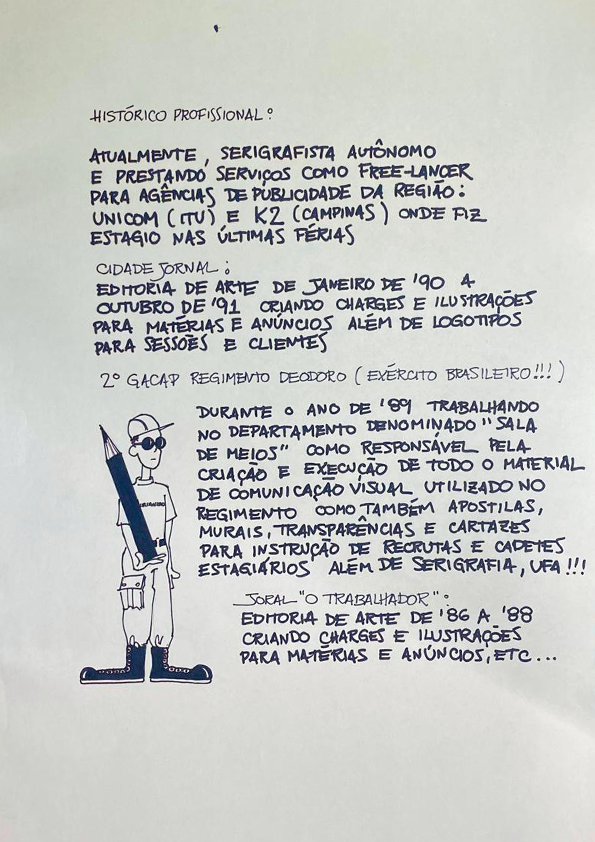 HISTÓRICO PROFISSIONAL:
ATUALMENTE, SERIGRAFISTA AUTÔNOMO
E PRESTANDO SERVIÇOS COMO FREE-LANCER
PARA AGÊNCIAS DE PUBLICIDADE DA REGIÃO:
UNICOM (ITU) E K2 (CAMPINAS) ONDE FIZ
ESTAGIO NAS ÚLTIMAS FÉRIAS
CIDADE JORNAL:
EDITORIA DE ARTE DE JANEIRO DE '90 A
OUTUBRO DE '91 CRIANDO CHARGES E ILUSTRAÇÕES
PARA MATÉRIAS E ANÚNCIOS ALÉM DE LOGOTIPOS
PARA SESSÕES E CLIENTES
2º GACAP REGIMENTO DEODORO (EXÉRCITO BRASILEIRO!!!)
DURANTE O ANO DE '89 TRABALHANDO
NO DEPARTAMENTO DENOMINADO "SALA
DE MEIOS" COMO RESPONSÁVEL PELA
CRIAÇÃO E EXECUÇÃO DE TODO O MATERIAL
DE COMUNICAÇÃO VISUAL UTILIZADO NO
REGIMENTO COMO TAMBÉM APOSTILAS,
MURAIS, TRANSPARÊNCIAS E CARTAZES
PARA INSTRUÇÃO DE RECRUTAS E CADETES
ESTAGIÁRIOS ALÉM DE SERIGRAFIA, UFA!!!
JORAL "O TRABALHADOR":
EDITORIA DE ARTE DE '86 A '88
CRIANDO CHARGES E ILUSTRAÇÕES
PARA MATÉRIAS E ANÚNCIOS, ETC...